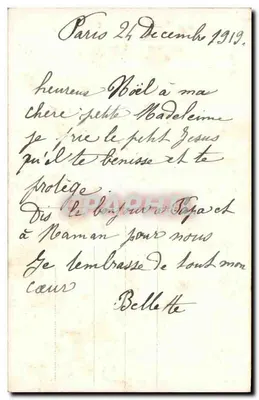 Paris 24 Decembre 1919.
heureux Nöel à ma
chere petite Madeleine
je prie le petit Jesus
qu'il te benisse et te
protège.
Dis le bonjour à Papa et
à Maman pour nous
Je t'embrasse de tout mon
cœur
Bellette